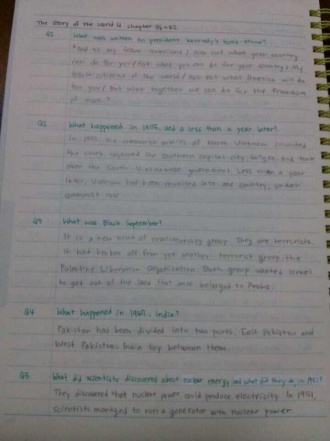 The Story of the World 4 chapter
Q1 What was written on president Kennedy's tomb stone?
"And so my fellow Americans / ask not what your country
can do for you / ask what you can do for your country / My
fellow citizens of the world / ask not what America will do
for you / but what together we can do for the freedom
of man."
Q2 What happened in 1975, and a less than a year later?
In 1975, the communist of North Vietnam
the southern capital city, Saigon, and took
over the South Vietnamese government. Less than a year
later, Vietnam had been reunited into one country, under
communist rule.
Q3 What was Black September?
It is a new kind of revolutionary group. They are terrorists.
It had broken off from yet another terrorist group, the
Palestine Liberation Organization. Both group wanted Israel
to get out of the land that once belonged to Arabs.
Q4 What happened in India?
Pakistan has been divided into two parts, East Pakistan and
West Pakistan. India lay between them.
Q5 What did scientists discovered about nuclear energy, and what did they do, in 1951?
They discovered that nuclear power could produce electricity. In 1951,
scientists managed to run a generator with nuclear power.